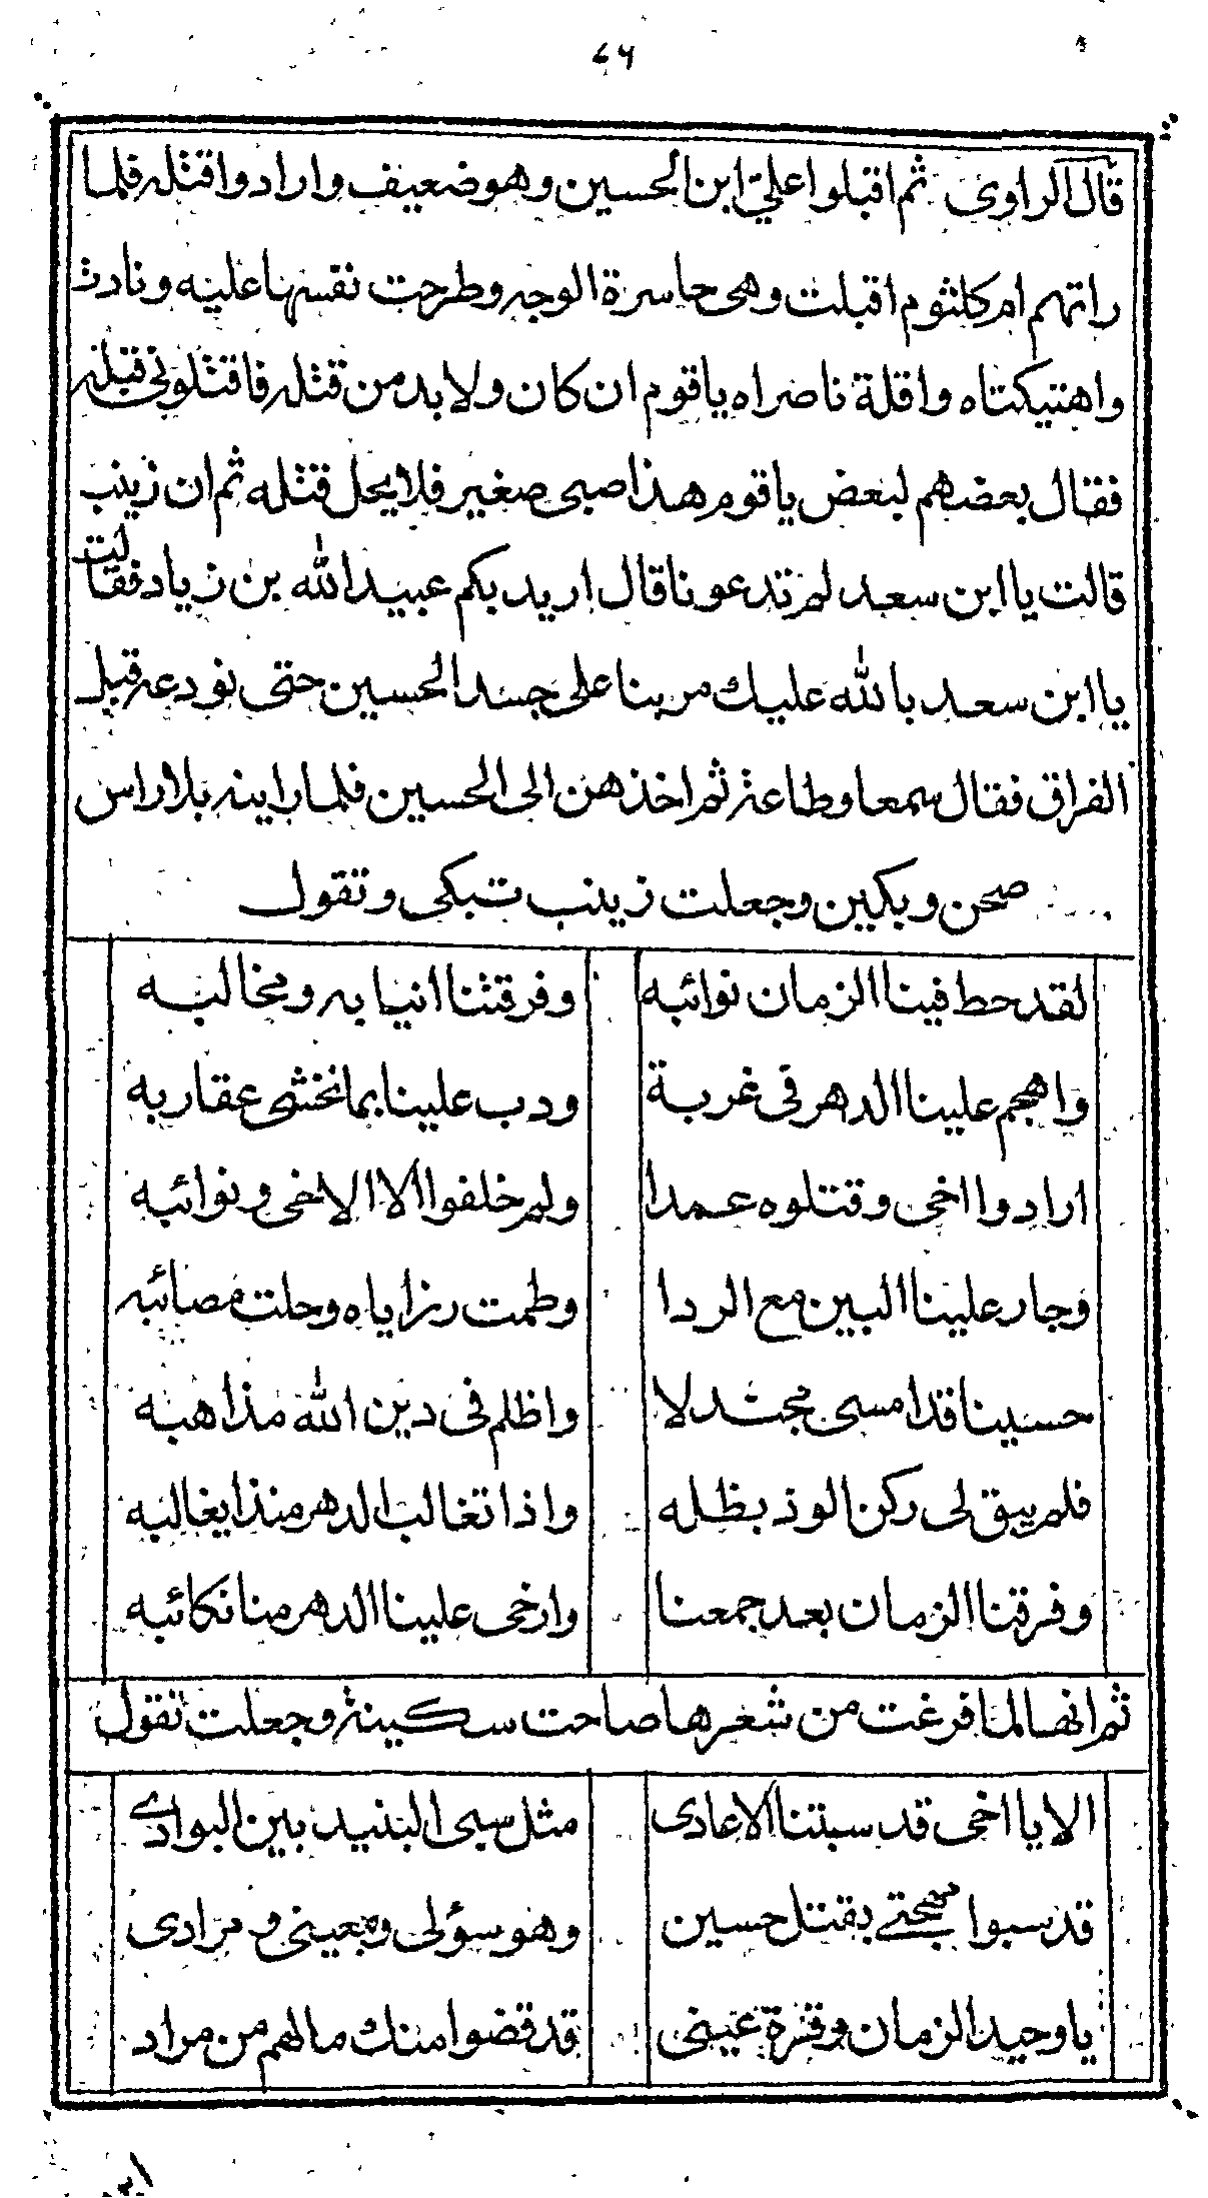 ٤٦
قال الراوى ثم اقبلوا علي ابن الحسين وهو ضعيف وارادوا قتله فلما
راتهم ام كلثوم اقبلت وهى حاسرة الوجه وطرحت نفسها عليه ونادت
واهتيكتاه واقلة ناصراه يا قوم ان كان ولا بد من قتله فاقتلونى قبله
فقال بعضهم لبعض يا قوم هذا صبى صغير فلا يحل قتله ثم ان زينب
قالت يا ابن سعد لم تدعونا قال اريد بكم عبيد الله بن زياد فقالت
يا ابن سعد بالله عليك مر بنا على جسد الحسين حتى نودعه قبل
الفراق فقال سمعا وطاعة ثم اخذهن الى الحسين فلما راينه بلا راس
صحن وبكين وجعلت زينب تبكى وتقول
لقد حط فينا الزمان نوائبه وفرقتنا انيابه ومخالبه
واهجم علينا الدهر فى غربة ودب علينا بما نخشى عقاربه
ارادوا اخى وقتلوه عمدا ولم خلفوا الا الاخى ونوائبه
وجار علينا البين مع الردا وطمت رزاياه وحلت مصائبه
حسينا قد امسى مجندلا واظلم فى دين الله مذاهبه
فلم يبق لى ركن الوذ بظله واذا تغالب الدهر منذا يغالبه
وفرقنا الزمان بعد جمعنا وارخى علينا الدهر منا نكائبه
ثم انها لما فرغت من شعرها صاحت سكينة وجعلت تقول
الا يا اخى قد سبتنا الاعادى مثل سبى البنيد بين البوادى
قد سبوا مهجتى بقتل حسين وهو سؤلى ومرادى
يا وحيد الزمان وقرة عينى قد قضوا منك ما لهم من مراد